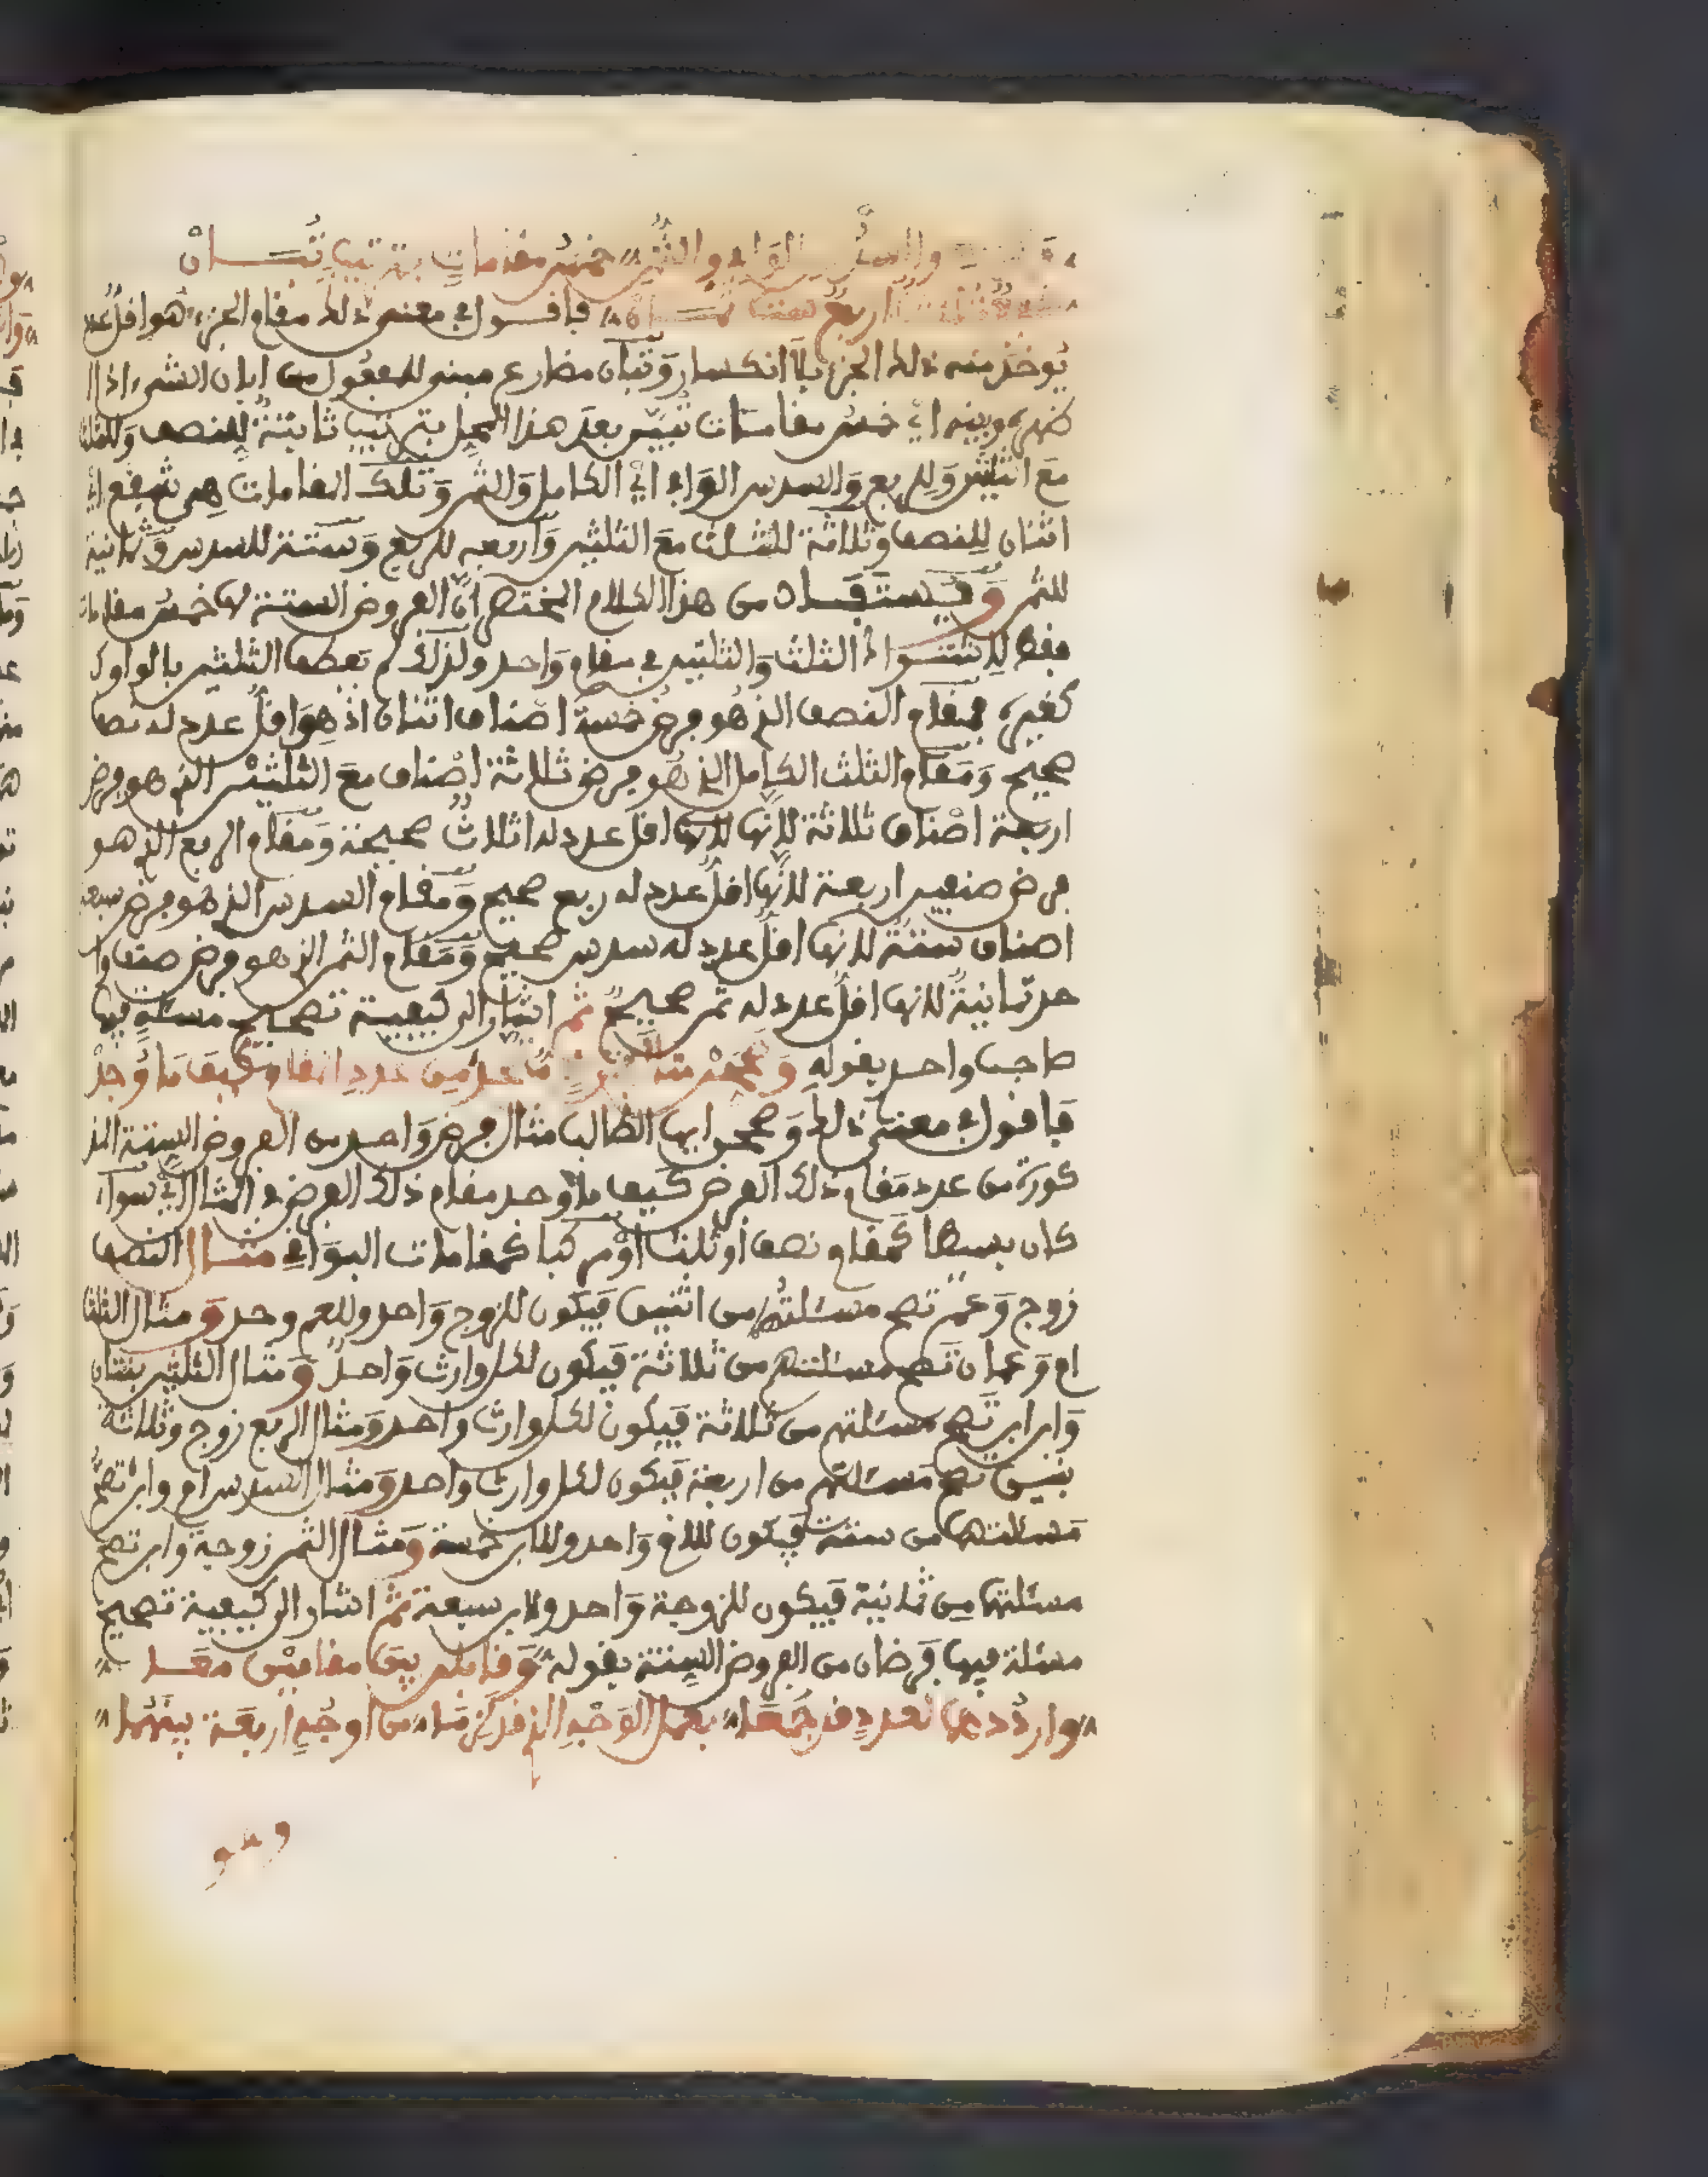 والسدس الوافي والثمن خمس مقامات بترتيب تبان
اربع ستة ثمان فاقول في معنى ذلك مقام الجزء هو اقل عدد
يوخذ منه ذلك الجزء بلا انكسار وتبان مضارع مبني للمفعول من ابان الشيء اذا ا
ظهره وبينه اي خمس مقامات تبين بعد هذا المحل بترتيب ثابتة للنصف وللثلث
مع الثلثين وللربع والسدس الوافي اي الكامل والثمن وتلك المقامات هي شفع اي
اثنان للنصف وثلاثة للثلث مع الثلثين واربعة للربع وستة للسدس وثمانية
للثمن ويستفاد من هذا الكلام المختصر ان الفروض الستة لها خمس مقامات
فقط لاشتراك الثلث والثلثين في مقام واحد ولذلك لم يعطف الثلثين بالواو ك
كغيره فمقام النصف الذي هو فرض خمسة اصناف اثنان اذ هو اقل عدد له نصف
صحيح ومقام الثلث الكامل الذي هو فرض ثلاثة اصناف مع الثلثين الذي هو فرض
اربعة اصناف ثلاثة لانها لانها اقل عدد له اثلاث صحيحة ومقام الربع الذي هو
فرض صنفين اربعة لانها اقل عدد له ربع صحيح ومقام السدس الذي هو فرض سبعة
اصناف ستة لانها اقل عدد له سدس صحيح ومقام الثمن الذي هو فرض صنف وا
حد ثمانية لانها اقل عدد له ثمن صحيح ثم اشار الى كيفية تصحيح مسئلة فيها
صاحب واحد بقوله من عدد المقام كيف ما وجد
فاقول في معنى ذلك وصححن ايها الطالب مثال فرض واحد من الفروض الستة المذ
كورة من عدد مقام ذلك الفرض كيف ما وجد مقام ذلك الفرض في المثال اي سواء
كان بسيطا كمقام نصف او ثلث او مركبا كمقامات البواقي مثال النصف
زوج وعم تصح مسئلتهما من اثنين فيكون للزوج واحد وللعم وحد ومثال الثلث
ام وعمان تصح مسئلتهم من ثلاثة فيكون لكل وارث واحد ومثال الثلثين بنتان
وابن ابن تصح مسئلتهم من ثلاثة فيكون لكل وارث واحد ومثال الربع زوج وثلاثة
بنين تصح مسئلتهم من اربعة فيكون لكل وارث واحد ومثال السدس ام وابن تصح
مسئلتهما من ستة فيكون للام واحد وللابن خمسة ومثال الثمن زوجة وابن تصح
مسئلتهما من ثمانية فيكون للزوجة واحد ولابن سبعة ثم اشار الى كيفية تصحيح
مسئلة فيها فرضان من الفروض الستة بقوله وقابلن بين مقامين معا
واردد الى العدد قد جمعا بعمل الوجه الذي قد لزما من اوجه اربعة بينهما
وهو